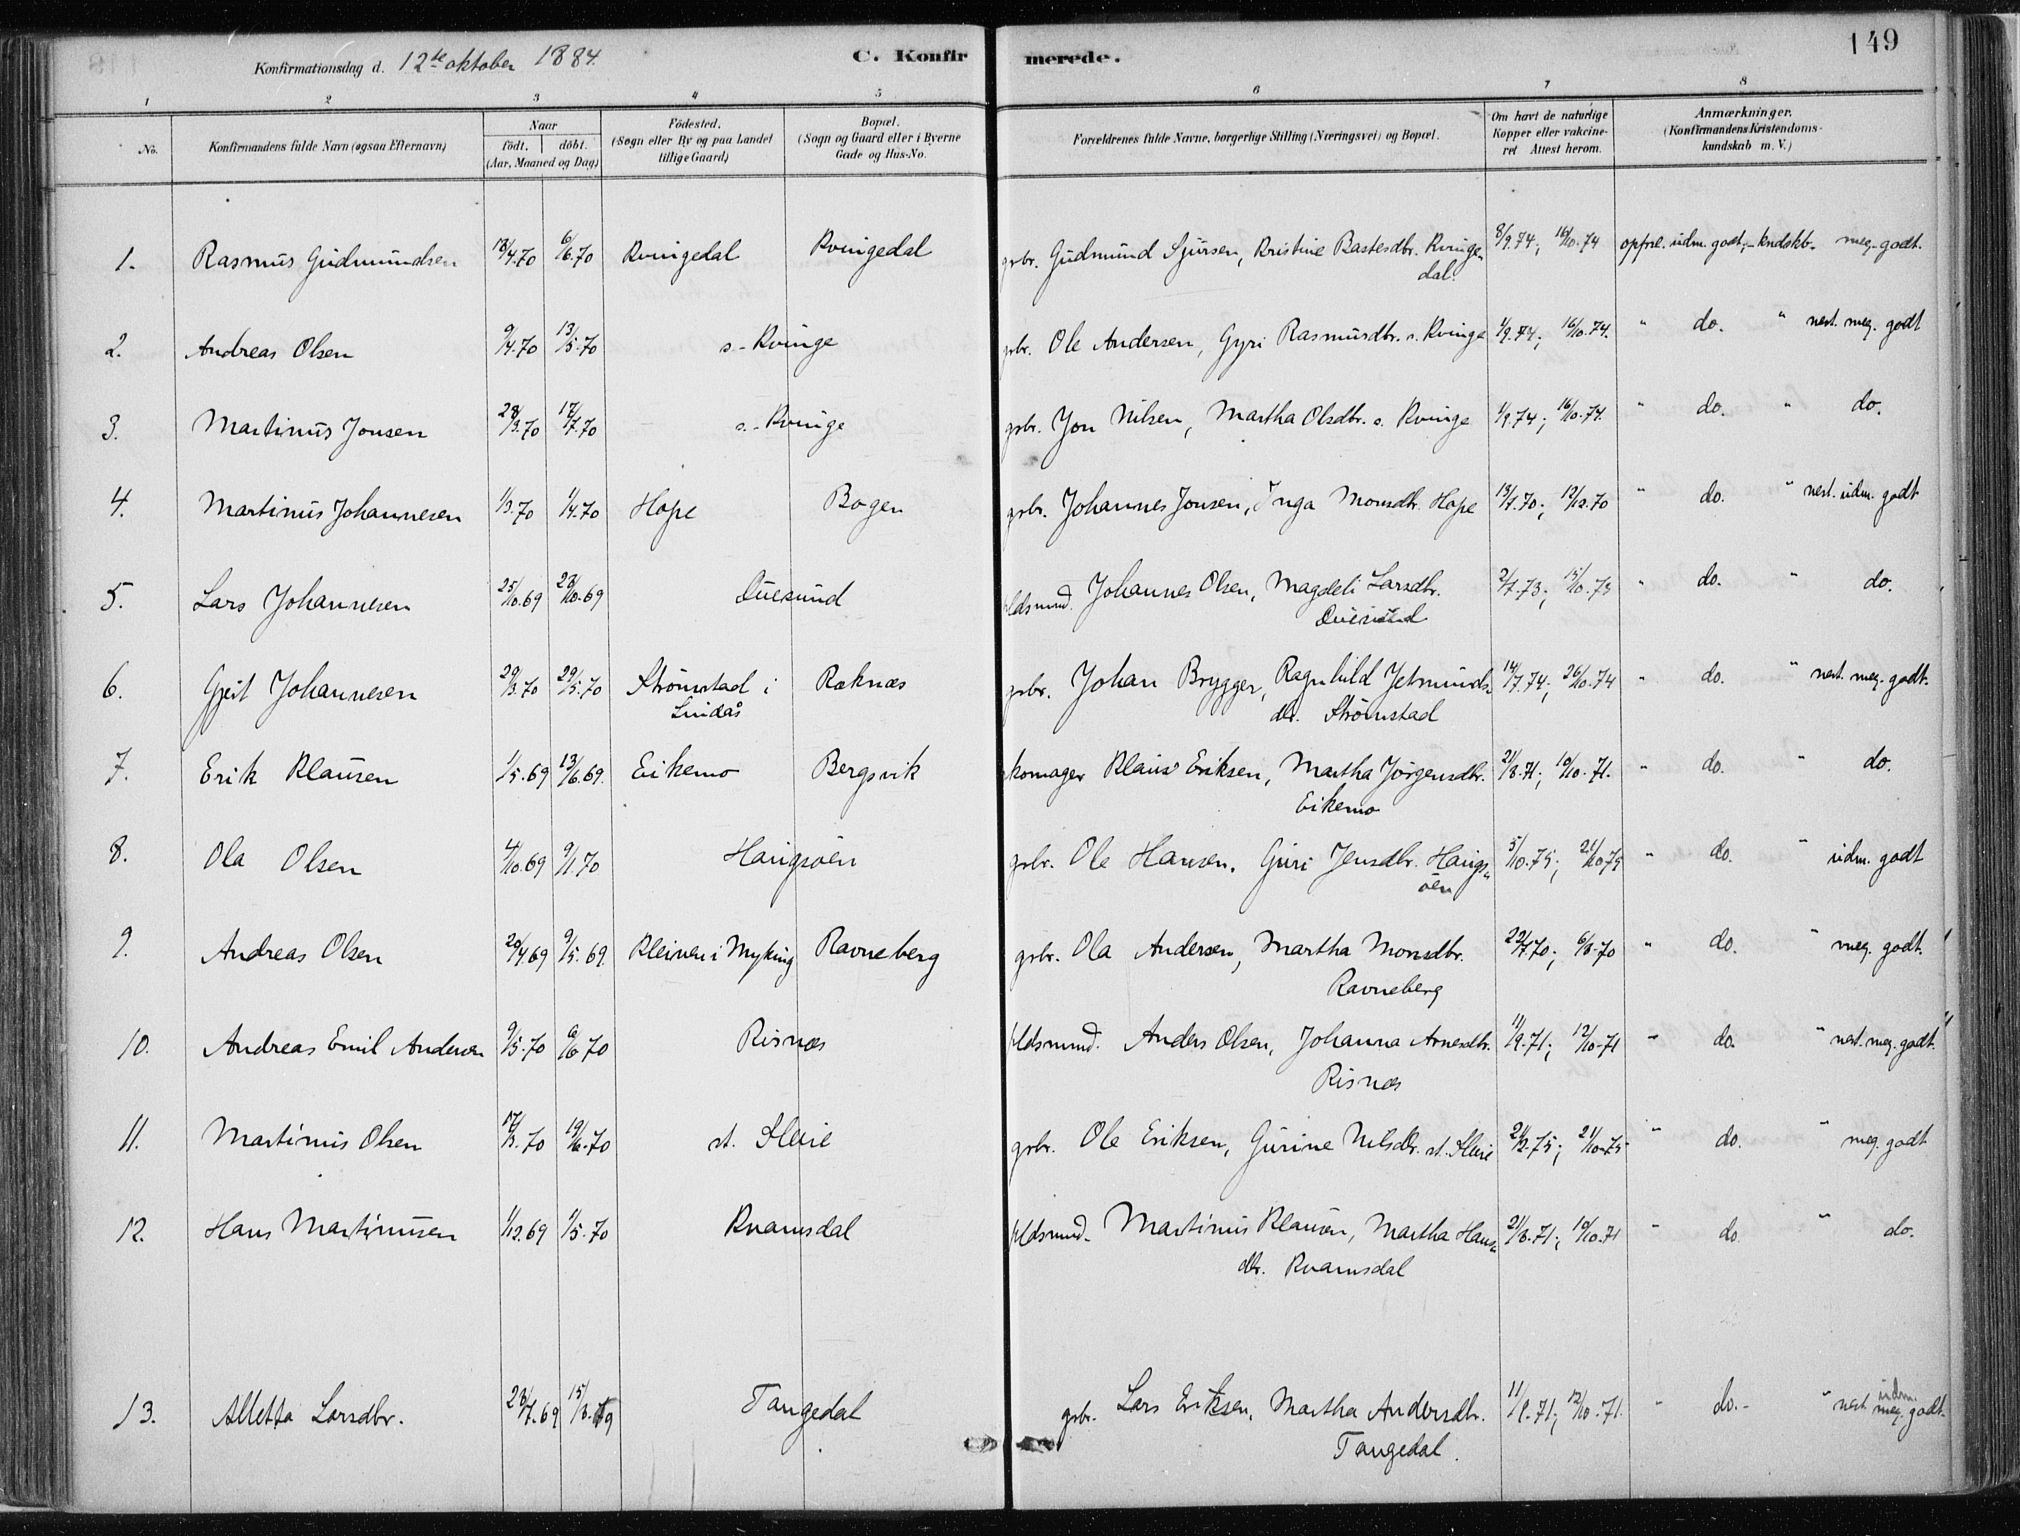 Konfirmationsdag d. 12te oktober 1884. C. Konfirmerede. 149
1 2 3 4 5 6 7 8
No. Konfirmandens fulde Navn (ogsaa Efternavn) Naar födt. döbt. (Aar, Maaned og Dag) Födested. (Sogn eller By og paa Landet tillige Gaard) Bopæl. (Sogn og Gaard eller i Byerne Gade og Hus-No. Forældrenes fulde Navne, borgerlige Stilling (Næringsvei) og Bopæl. Om havt de naturlige Kopper eller vakcineret Attest herom. Anmærkninger. (Konfirmandens Kristendomskundskab m. V.)
1. Rasmus Gudmundsen 18/4.70 6/6.70 Kvingedal Kvingedal gbr. Gudmund Sjursen, Kristine Bastesdtr. Kvinge- 8/9.74; 16/10.74 opfrsl. udm. godt,- kndskb- meg. godt.
dal.
2. Andreas Olsen 9/4.70 13/5.70 s. Kvinge gbr. Ole Andersen, Gyri Rasmusdtr. s. Kvinge 1/9.74; 16/10.74. " do. " nest. meg. godt
3. Martinus Jonsen 28/3.70 17/7.70 s. Kvinge gbr. Jon Nilsen, Martha Olsdtr. s. Kvinge 1/9.74; 16/10.74. " do. " do.
4. Martinus Johannesen 1/3.70 1/4.70 Hope Bogen gbr. Johannes Jonsen, Inga Monsdtr. Hope 13/7.70; 12/12.70 " do. " nest. udm. godt
5. Lars Johannesen 25/10.69 28/10.69 Duesund pldsmnd. Johannes Olsen, Magdeli Larsdtr. 2/7.73; 15/10.73 " do. " do.
Duesund
6. Gjert Johannesen 29/3.70 29/5.70 Strömstad i Raknæs gbr. Johan Brygger, Ragnhild Jetmunds- 14/7.74; 26/10.74 " do. " nest. meg. godt.
Lindås dtr. Strömstad
7. Erik Klausen 1/5.69 13/6.69. Eikemo Bergsvik skomager Klaus Eriksen, Martha Jörgensdtr. 21/8.71; 10/10.71. " do. " do.
Eikemo
8. Ola Olsen 4/10.69 9/1.70 Haugsöen gbr. Ole Hansen. Guri Jensdtr. Haugs- 5/10.75; 21/10.75 " do. " udm. godt
öen
9. Andreas Olsen 20/4.69 9/5.69. Kleiven i Myking Ravneberg gbr. Ola Andersen, Martha Monsdtr. 22/7.70; 6/8.70 " do. " meg. godt.
Ravneberg
10. Andreas Emil Andersen 9/5.70 6/6.70 Risnæs pldsmnd. Anders Olsen, Johanna Arnesdtr. 11/9.71; 12/10.71 " do. " nest. meg. godt.
Risnæs
11. Martinus Olsen 17/3.70 19/6.70 st. Steire gbr. Ole Eriksen, Gurine Nilsdtr. st. Steire 21/2.75; 21/10.75 " do. " meg. godt
12. Hans Martinusen 1/12.69 1/5.70 Kvamsdal pldsmnd. Martinus Klausen, Martha Hans- 21/8.71; 10/10.71 " do. " do.
dtr. Kvamsdal
13. Alletta Larsdtr. 23/7.69 15/8.69 Tangedal gbr. Lars Eriksen, Martha Andersdtr. 11/9.71; 12/10.71. " do. " nest. udm. meg. godt.
Tangedal.